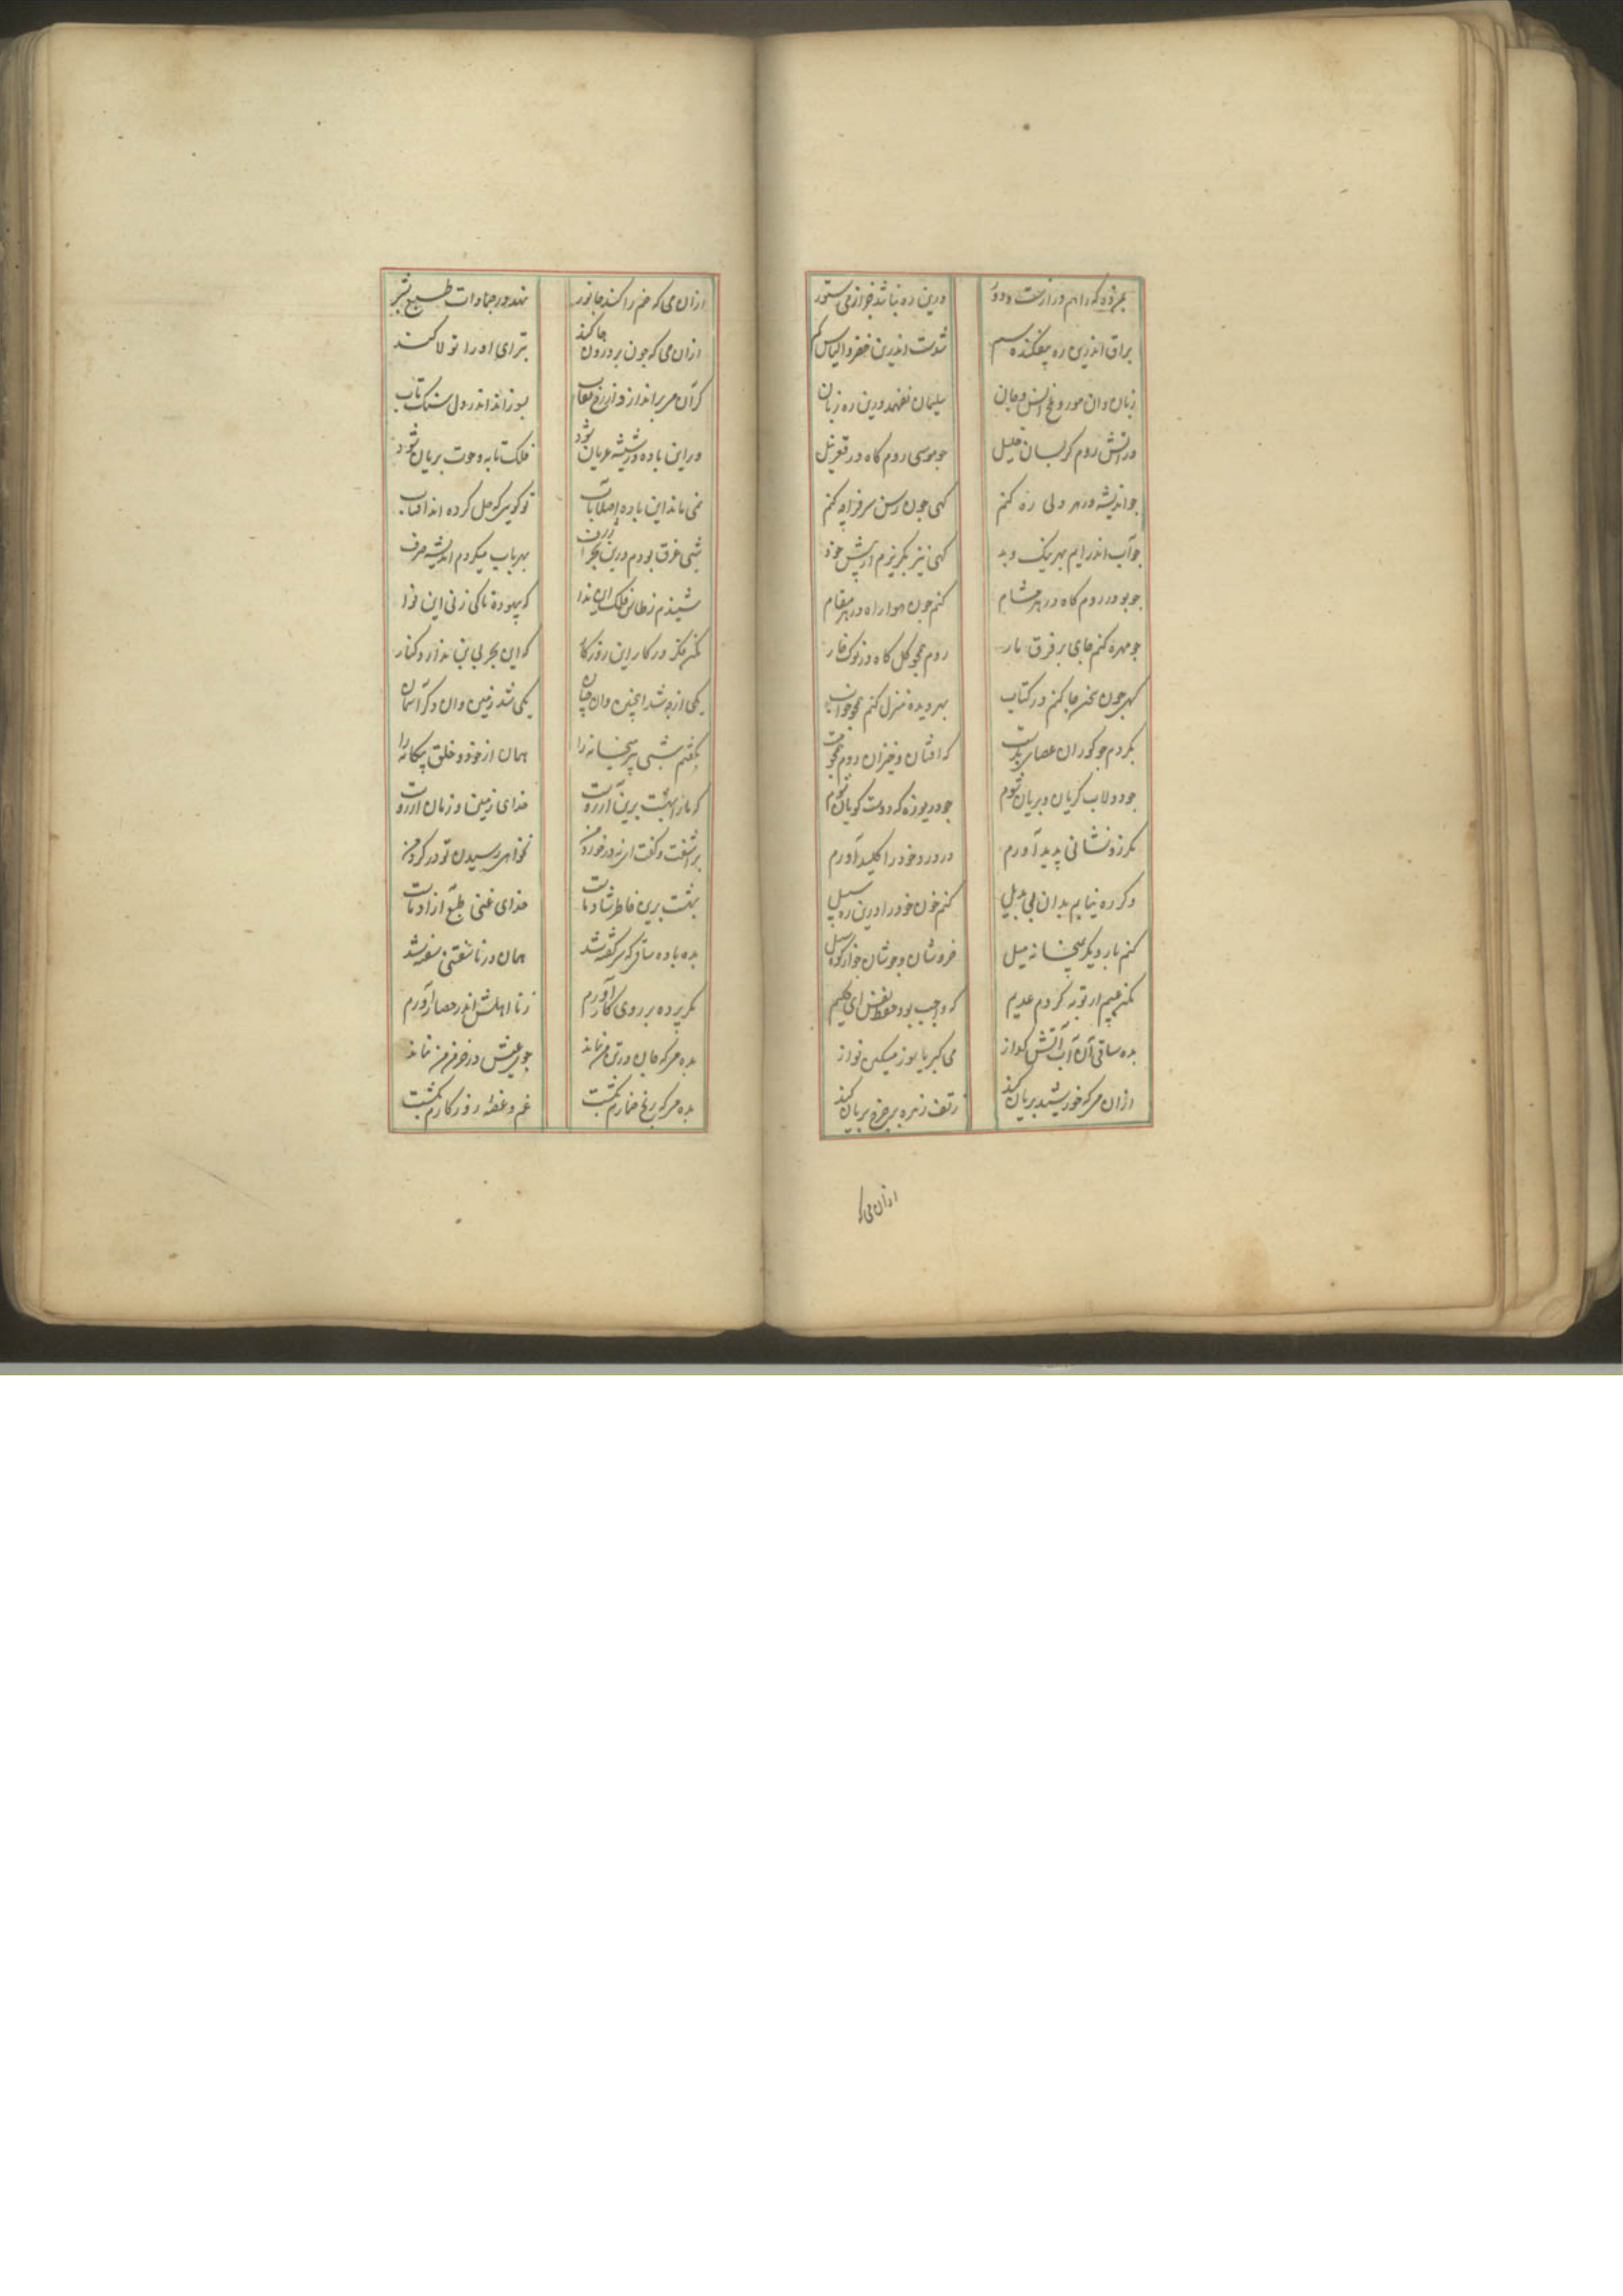 درین ره نباشد خرازمی ستور
براق اندرین ره بیفکنده سم شدست اندرین خضر و الیاس کم
زبان دان مور و ملخ انس و جان سلیمان نفهمد درین ره زبان
در آتش روم کر بسان خلیل چو موسی روم کاه در قعر نیل
چو اندیشه در هر دلی ره کنم کهی چون رسن سر فرا چه کنم
چو آب اندر ایم بهر نیک و بد کهی نیز بکریزم از پیش خود
چو بو در روم کاه در هر مشام کنم چون هوا راه در هر مقام
چو مهره کنم جای بر فرق مار روم همچو کل کاه در نوک خار
کهی چون سخن جا کنم در کتاب بهر دیده منزل کنم همچو خواب
بکردم چو کوران عصایی بدست که افتان و خیزان روم همچو مست
چو دولاب کریان و بریان شوم چو دریوزه که دوست کویان شوم
مکر زو نشانی پدید آورم در درد خود را کلید آورم
وکر ره نیابم بدان بی بدیل کنم خون خود را درین ره سبیل
کنم بار دیکر بمیخانه میل خروشان و جوشان چو از کوه سیل
مکن عیبم ار توبه کردم عدیم که واجب بود حفظ نفس ای حکیم
بده ساقی آن آب آتش کداز می کبریا سوز مسکین نواز
از ان می که خورشید بریان کند زتف زهره بر چرخ بریان کند
از ان می که
از ان می که خم را کند جانور نهد در جمادات طبع بشر
از ان می که چون بر درون جا کند تبرای او را تولا کند
کر آن می براندازد از رخ نقاب بسوزاند اندر دل سنک تاب
ور این باده در شیشه عریان شود فلک تابه و حوت بریان شود
نمی ماند این باده اصلا بآب تو کویی که حل کرده اند آفتاب
شبی غرق بودم درین بحر ژرف بهر باب میکردم اندیشه صرف
شنیدم ز طاق فلک این ندا که بیهوده تا کی زنی این نوا
مکن فکر در کار این روزکار که این بحر بی بن ندارد کنار
یکی از چه شد اینچنین وان چنان یکی شد زمین وان دکر آسمان
بکفتم شبی پیر میخانه را همان از خود و خلق بیکانه را
که ما را بهشت برین آرزوست خدای زمین و زمان آرزوست
بر آشفت و کفت ای نه در خورد من نخواهی رسیدن تو در کرد من
بهشت برین خاطر شاد ماست خدای غنی طبع آزاد ماست
بده باده ساقی که سر کفته شد همان در ناسفتنی سفته شد
مکر پرده بر روی کار آورم ز نا اهلش اندر حصار آورم
بده می که جان در تن من نماند جوی عیش در خرمن من نماند
بده می که رنج خمارم بکشت غم و غصه روزکارم بکشت